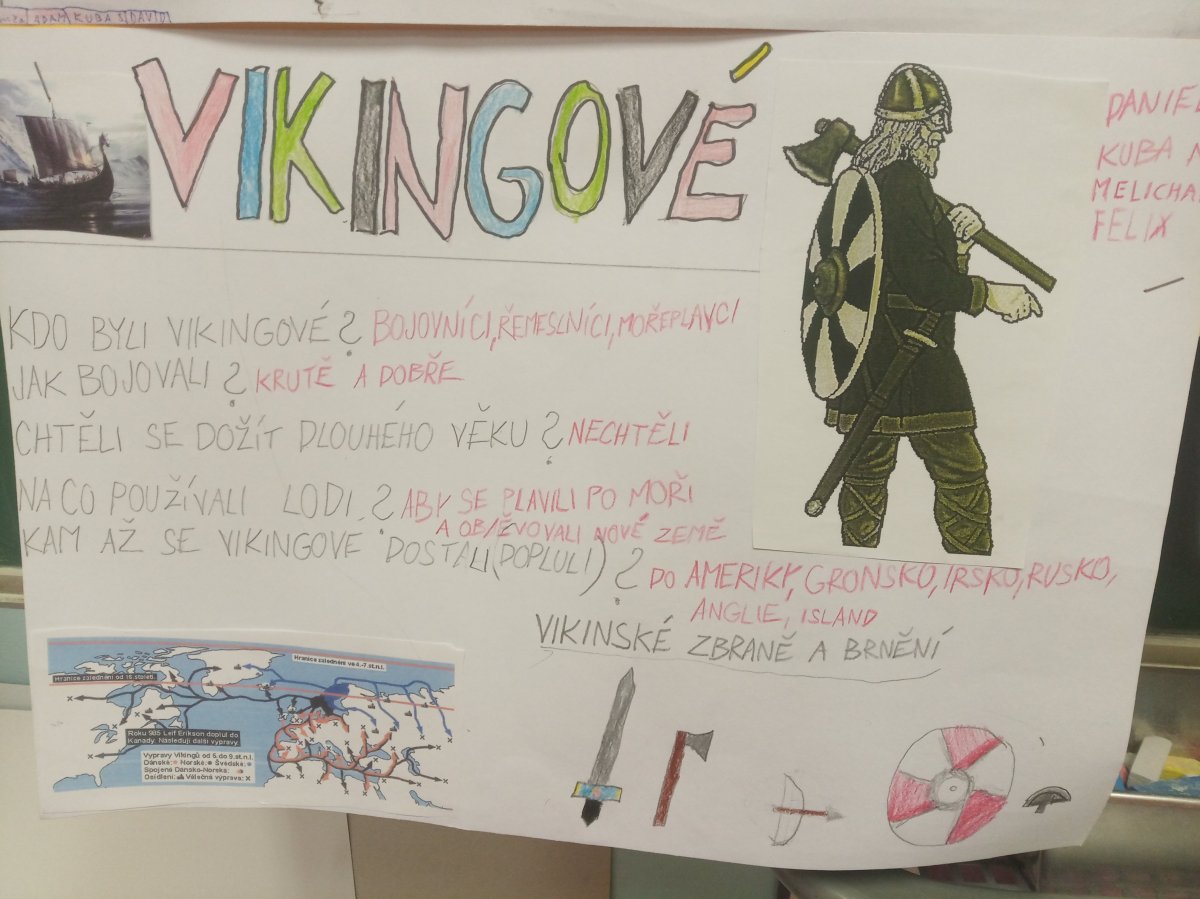 ADAM KUBA S DAVID
VIKINGOVÉ
DANIE
KUBA
MELICHA
FELIX
KDO BYLI VIKINGOVÉ? BOJOVNÍCI, ŘEMESLNÍCI, MOŘEPLAVCI
JAK BOJOVALI? KRUTĚ A DOBŘE
CHTĚLI SE DOŽÍT DLOUHÉHO VĚKU? NECHTĚLI
NA CO POUŽÍVALI LODI? ABY SE PLAVILI PO MOŘI
A OBJĚVOVALI NOVÉ ZEMĚ
KAM AŽ SE VIKINGOVÉ DOSTALI (DOPLULI)? DO AMERIKY, GRONSKO, IRSKO, RUSKO,
ANGLIE, ISLAND
VIKINSKÉ ZBRANĚ A BRNĚNÍ
Hranice zalednění ve 4.-7.st.n.l.
Hranice zalednění od 16 století.
Roku 985 Leif Erikson doplul do
Kanady. Následují další výpravy.
Vypravy Vikingů od 6.do 9.st.n.l.
Dánské: Norské: Švédská:
Spojená Dánsko-Norská:
Osídlení: Válečná výprava: